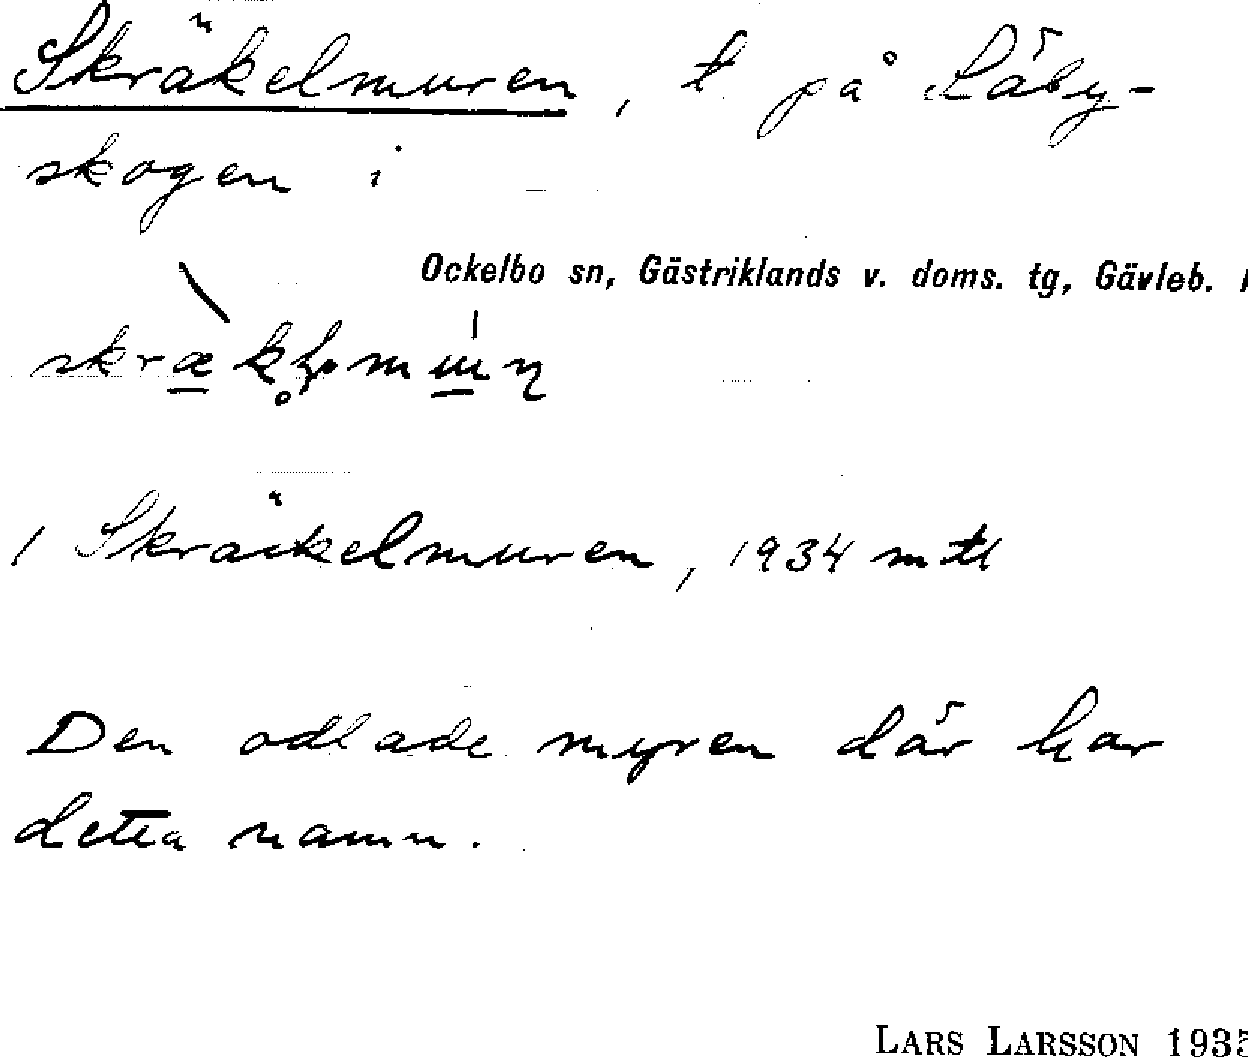 Skräkelmuren, t på Säby-
skogen i
Ockelbo sn, Gästriklands v. doms. tg, Gävleb. l
/ Skräckelmuren, 1934 mtl
Den odlade myren där har
detta namn.
LARS LARSSON 1935